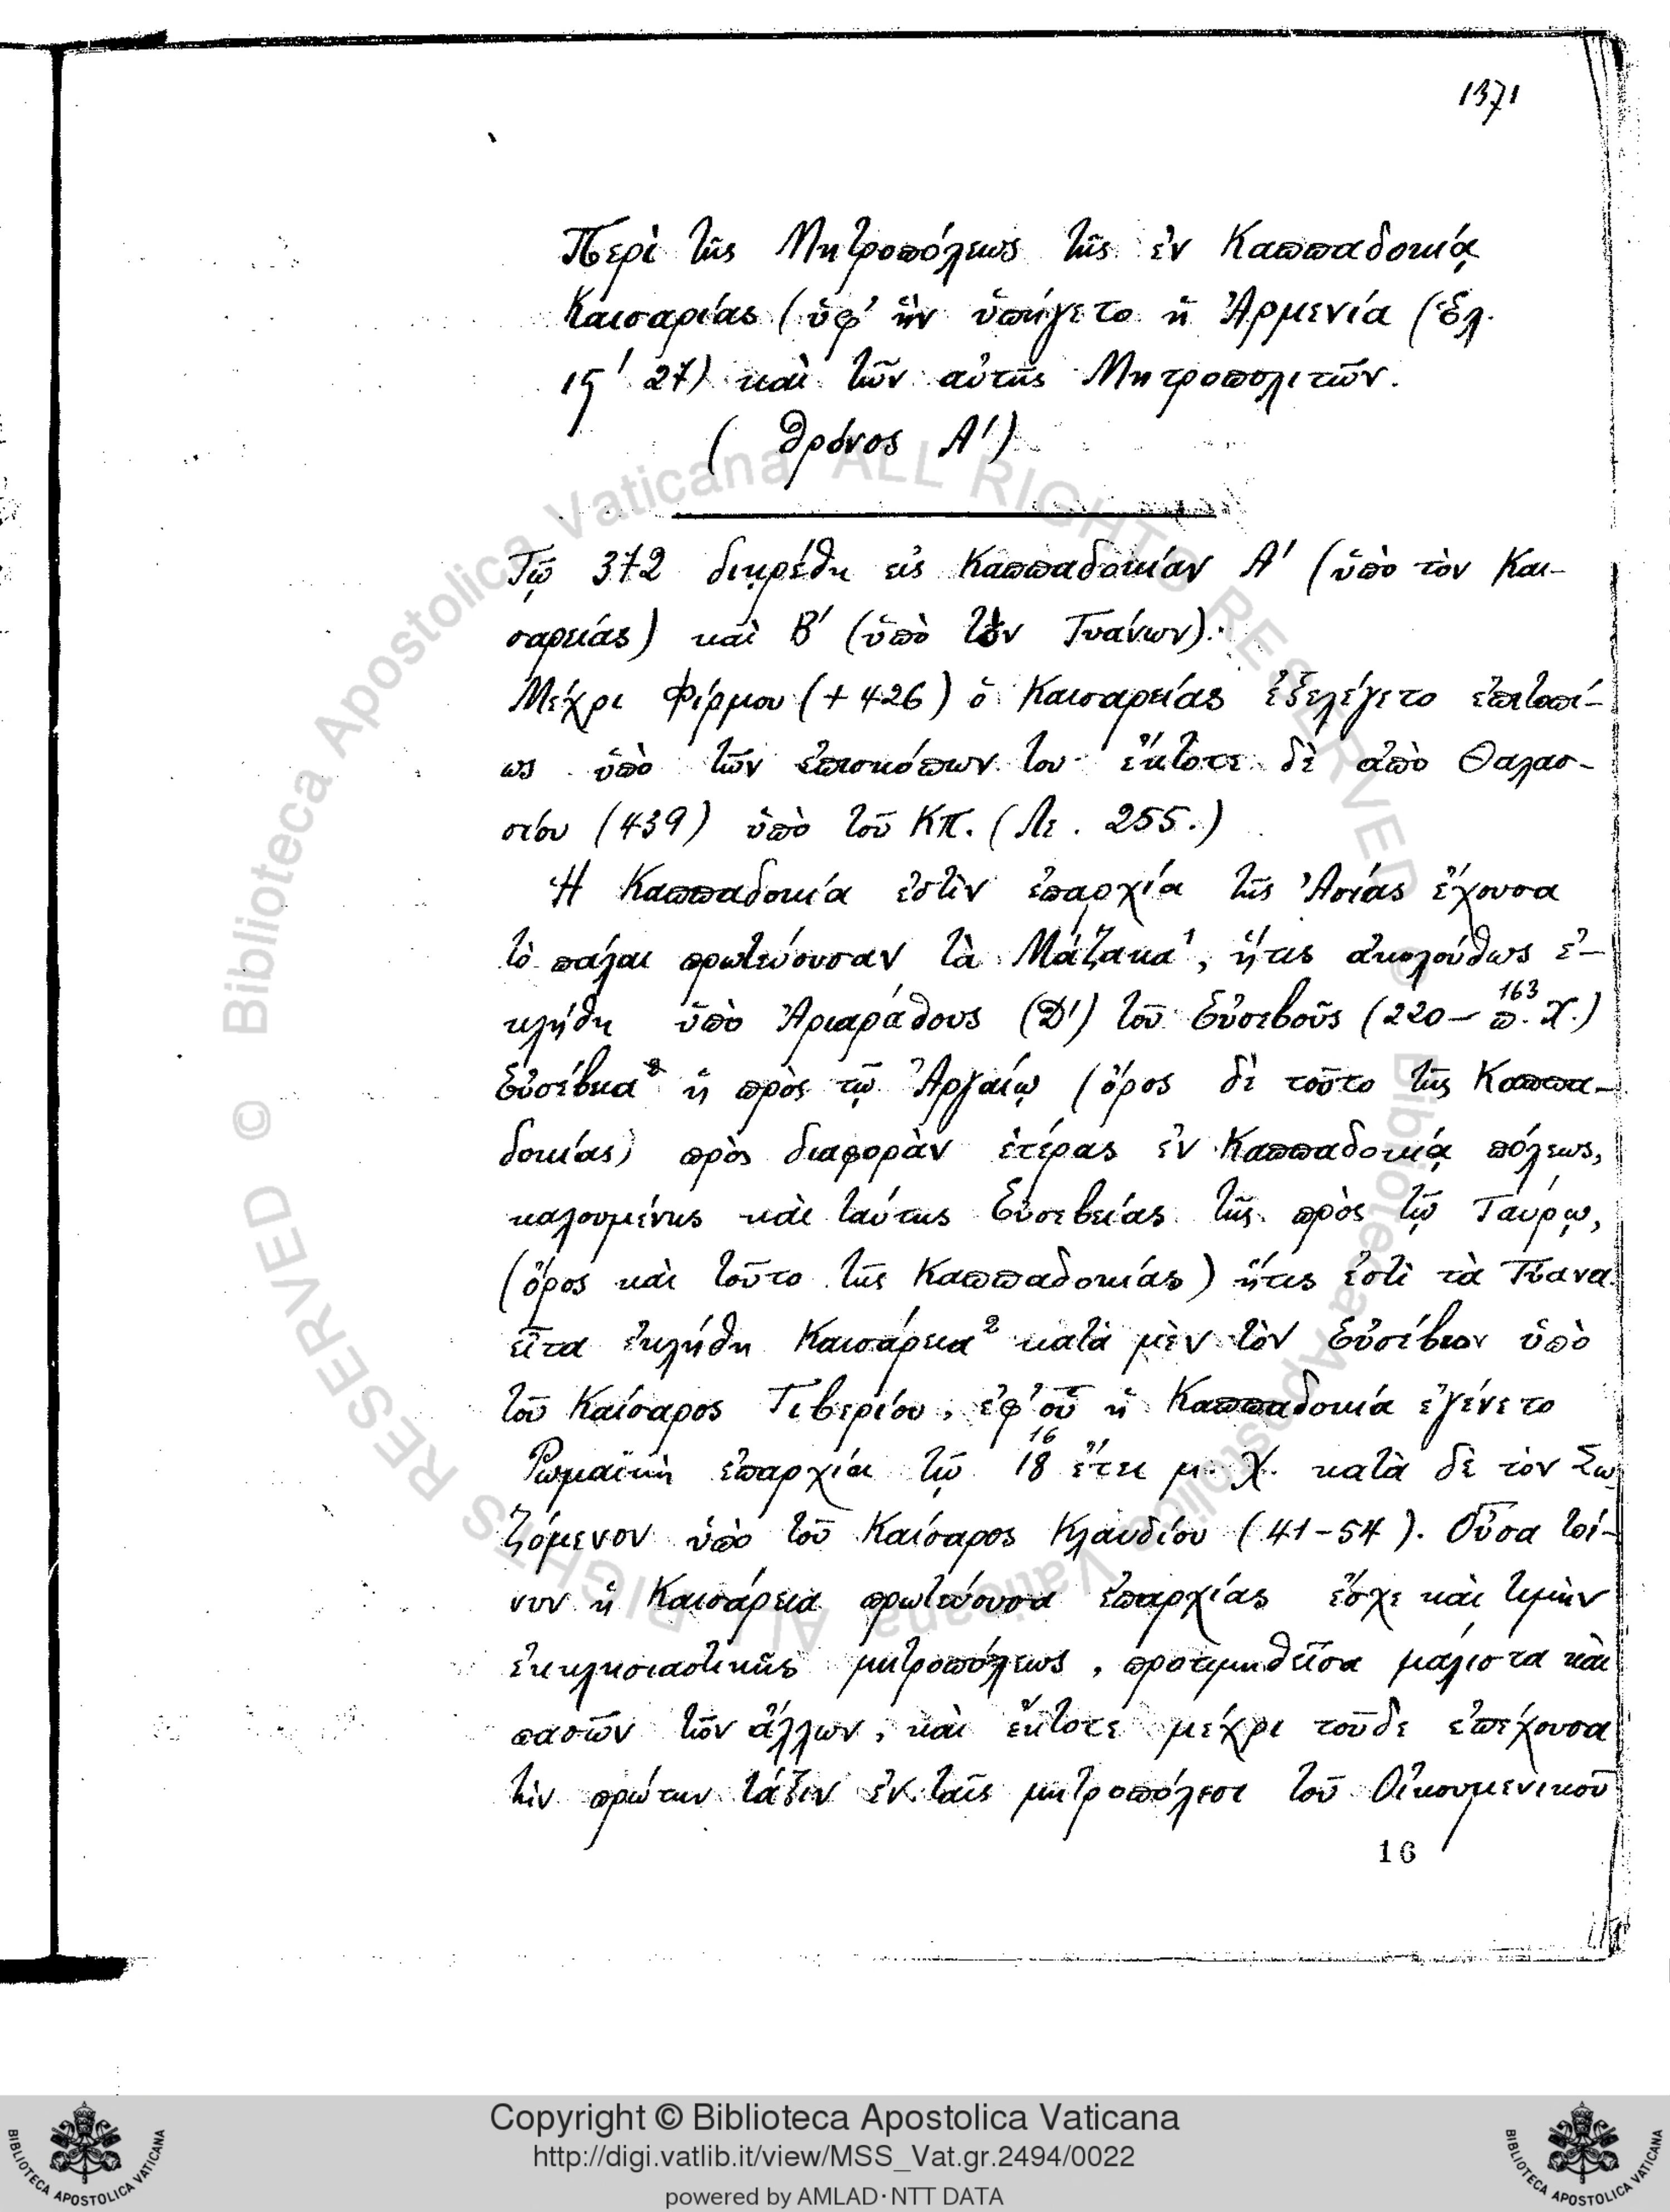 1371
Περὶ τῆς Μητροπόλεως τῆς ἐν Καππαδοκίᾳ
Καισαρίας (ὑφ' ἣν ὑπήγετο ἡ Ἀρμενία (βλ.
27) καὶ τῶν αὐτῆς Μητροπολιτῶν.
(θρόνος Α')
Τῷ 372 διῃρέθη εἰς Καππαδοκίαν Α' (ὑπὸ τὸν Και-
σαρείας) καὶ Β' (ὑπὸ τὸν Τυάνων).
Μέχρι Φίρμου (+426) ὁ Καισαρείας ἐξελέγετο ἐπιτοπί-
ως ὑπὸ τῶν ἐπισκόπων του ἔκτοτε δὲ ἀπὸ Θαλασ-
σίου (439) ὑπὸ τοῦ Κπ. (Λε. 255.)
Ἡ Καππαδοκία ἐστὶν ἐπαρχία τῆς Ἀσίας ἔχουσα
τὸ πάλαι πρωτεύουσαν τὰ Μάζακα¹, ἥτις ἀκολούθως ἐ-
κλήθη ὑπὸ Ἀριαράθους (Δ') τοῦ Εὐσεβοῦς (220–163 π.Χ.)
Εὐσέβεια ἡ πρὸς τῷ Ἀργαίῳ (ὄρος δὲ τοῦτο τῆς Καππα-
δοκίας) πρὸς διαφορὰν ἑτέρας ἐν Καππαδοκίᾳ πόλεως,
καλουμένης καὶ ταύτης Εὐσεβείας τῆς πρὸς τῷ Ταύρῳ,
(ὄρος καὶ τοῦτο τῆς Καππαδοκίας) ἥτις ἐστὶ τὰ Τύανα.
εἶτα ἐκλήθη Καισάρεια² κατὰ μὲν τὸν Εὐσέβιον ὑπὸ
τοῦ Καίσαρος Τιβερίου, ἐφ' οὗ ἡ Καππαδοκία ἐγένετο
Ῥωμαϊκὴ ἐπαρχία τῷ 18 16 ἔτει μ. Χ. κατὰ δὲ τὸν Σω-
ζόμενον ὑπὸ τοῦ Καίσαρος Κλαυδίου (41–54). Οὖσα τοί-
νυν ἡ Καισάρεια πρωτεύουσα ἐπαρχίας ἔσχε καὶ τιμὴν
ἐκκλησιαστικῆς μητροπόλεως, προτιμηθεῖσα μάλιστα καὶ
πασῶν τῶν ἄλλων, καὶ ἔκτοτε μέχρι τοῦδε ἐπέχουσα
τὴν πρώτην τάξιν ἐν ταῖς μητροπόλεσι τοῦ Οἰκουμενικοῦ
16
© Biblioteca Apostolica Vaticana ALL RIGHTS RESERVED © Biblioteca Apostolica Vaticana ALL RIGHTS RESERVED
BIBLIOTECA APOSTOLICA VATICANA
Copyright © Biblioteca Apostolica Vaticana
http://digi.vatlib.it/view/MSS_Vat.gr.2494/0022
powered by AMLAD·NTT DATA
BIBLIOTECA APOSTOLICA VATICANA